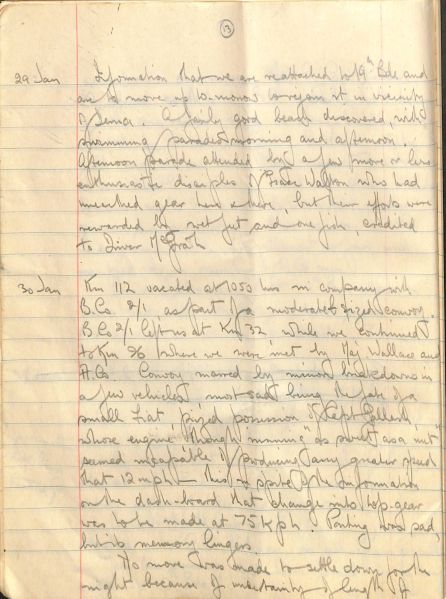 13
29 Jan Information that we are reattached to 19th Bde and
are to move up to-morrow to rejoin it in vicinity
of Derna. A fairly good beach discovered, with
swimming parades morning and afternoon.
Afternoon parade attended by a few more or less
enthusiastic disciples of Izaak Walton who had
mustered gear here & there, but their efforts were
rewarded by wet feet and one fish, credited
to Driver McGrath
30 Jan Km 112 vacated at 1050 hrs in company with
B.Co 2/1 as part of a moderate sized convoy.
B.Co 2/1 left us at Km 32 while we continued
to Km 26 where we were met by Maj Wallace and
A.Co Convoy marred by minor breakdowns in
a few vehicles, most sad being the fate of a
small Fiat, prized possession of Capt
whose engine though running "as sweet as a nut"
seemed incapable of producing any greater speed
than 12 mph - this in spite of the information
on the dash-board that change into top-gear
was to be made at 75 Kph. Parting was sad,
but its memory lingers
No move was made to settle down for the
night because of uncertainty of length of